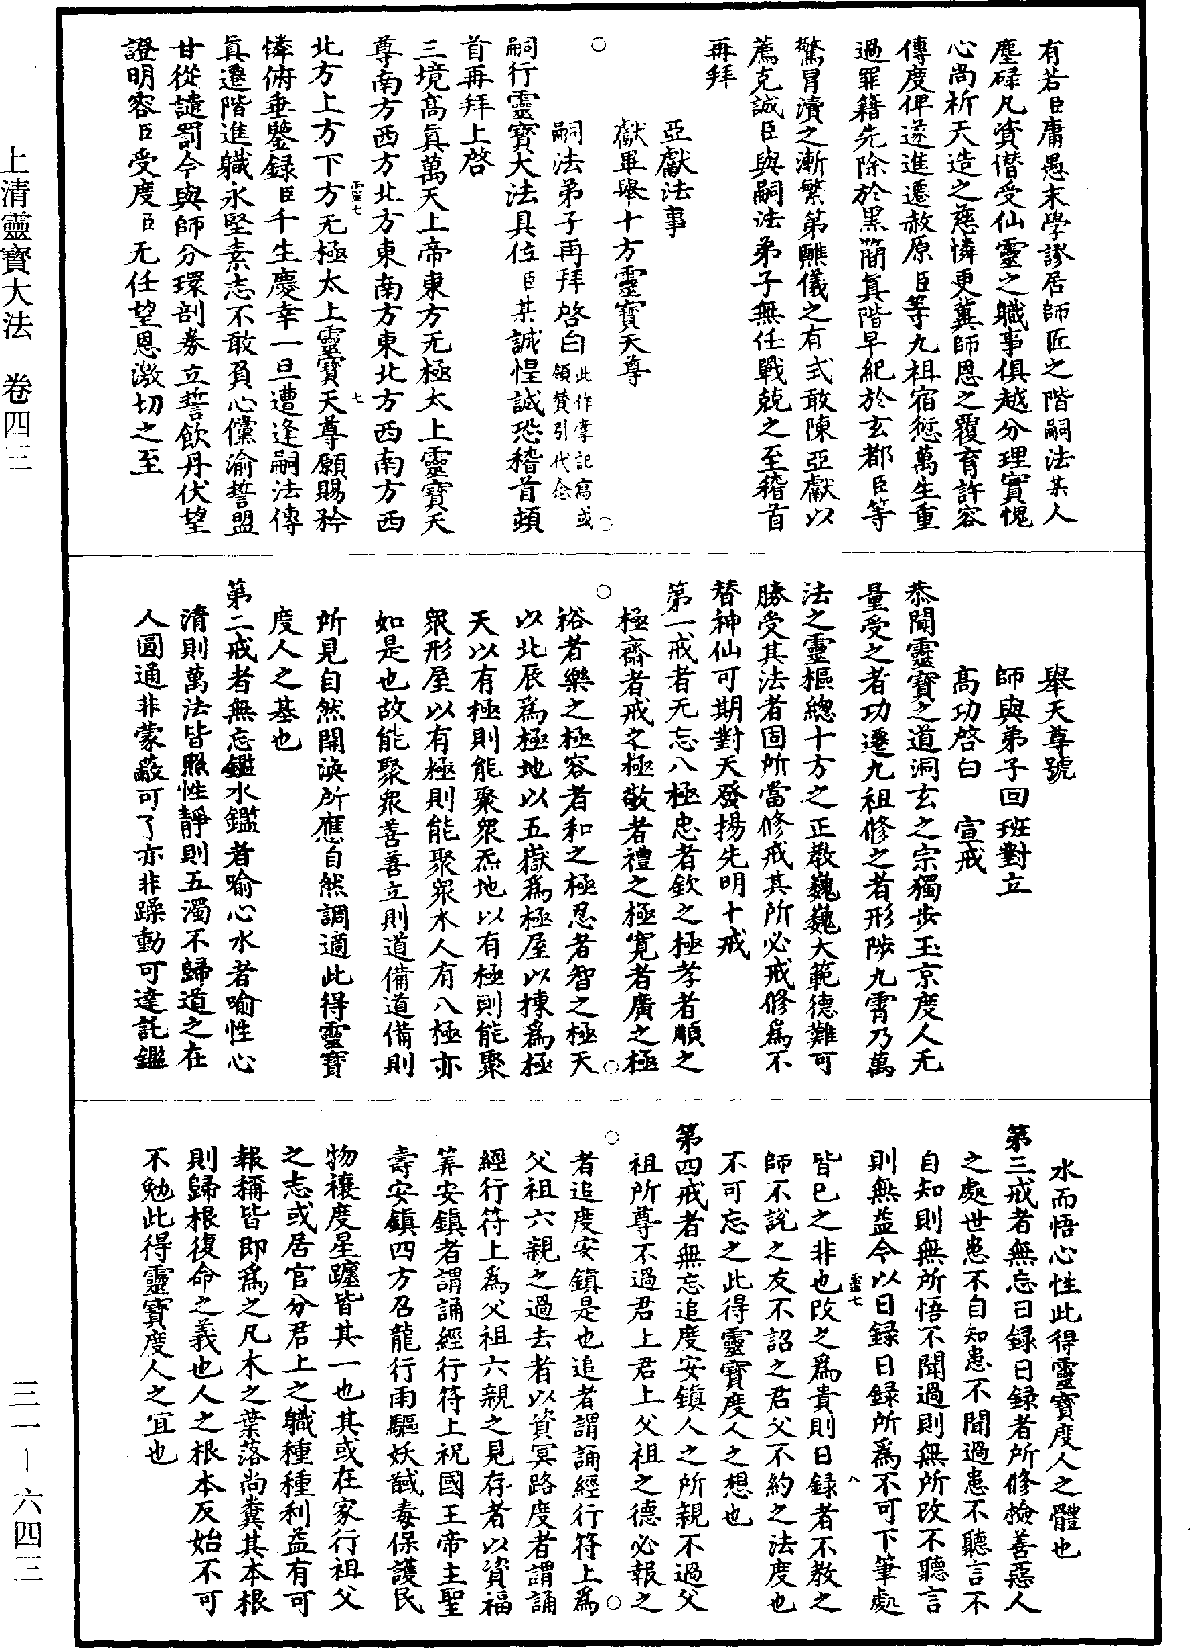 有若臣庸愚末學謬居師匠之階嗣法某人
塵碌凡資僭受仙靈之職事俱越分理實愧
心尚祈天造之慈憐更冀師恩之覆育許容
傳度俾遂進遷赦原臣等九祖宿愆萬生重
過罪籍先除於黑簡真階早紀於玄都臣等
驚冒瀆之漸繁第醮儀之有式敢陳亞獻以
薦克誠臣與嗣法弟子無任戰兢之至稽首
再拜
亞獻法事
獻畢舉十方靈寶天尊
嗣法弟子再拜啓白此作掌記寫或領贊引代念
嗣行靈寶大法具位臣某誠惶誠恐稽首頓
首再拜上啓
三境高眞萬天上帝東方无極太上靈寶天
尊南方西方北方東南方東北方西南方西
北方上方下方无極太上靈寶天尊願賜矜
靈七
七
憐俯垂鑒録臣千生慶幸一旦遭逢嗣法傳
眞遷階進職永堅素志不敢負心儻渝誓盟
甘從譴罰今與師分環剖券立誓飲丹伏望
證明容臣受度臣无任望恩激切之至
舉天尊號
師與弟子回班對立
高功啓白　宣戒
恭聞靈寶之道洞玄之宗獨步玉京度人无
量受之者功遷九祖修之者形陟九霄乃萬
法之靈樞總十方之正教巍巍大範德難可
勝受其法者固所當修戒其所必戒修爲不
替神仙可期對天發揚先明十戒
第一戒者无忘八極忠者欽之極孝者順之
極齋者戒之極敬者禮之極寛者廣之極
裕者樂之極容者和之極忍者智之極天
以北辰爲極地以五嶽爲極屋以棟爲極
天以有極則能聚衆炁地以有極則能聚
衆形屋以有極則能聚衆木人有八極亦
如是也故能聚衆善善立則道備道備則
所見自然開渙所應自然調適此得靈寶
度人之基也
第二戒者無忘鑑水鑑者喻心水者喻性心
清則萬法皆照性靜則五濁不歸道之在
人圓通非蒙蔽可了亦非躁動可達託鑑
水而悟心性此得靈寶度人之體也
第三戒者無忘日録日録者所修檢善惡人
之處世患不自知患不聞過患不聽言不
自知則無所悟不聞過則無所改不聽言
則無益今以日録日録所爲不可下筆處
靈七
八
皆巳之非也改之爲貴則日録者不教之
師不說之友不詔之君父不約之法度也
不可忘之此得靈寶度人之想也
第四戒者無忘追度安鎮人之所親不過父
祖所尊不過君上君上父祖之德必報之
者追度安鎮是也追者謂誦經行符上爲
父祖六親之過去者以資冥路度者謂誦
經行符上爲父祖六親之見存者以資福
筭安鎮者謂誦經行符上祝國王帝主聖
壽安鎮四方召龍行雨驅妖馘毒保護民
物禳度星躔皆其一也其或在家行祖父
之志或居官分君上之職種種利益有可
報稱皆即爲之凡木之葉落尚糞其本根
則歸根復命之義也人之根本反始不可
不勉此得靈寶度人之宜也
上清靈寶大法　卷四三
三一－六四三